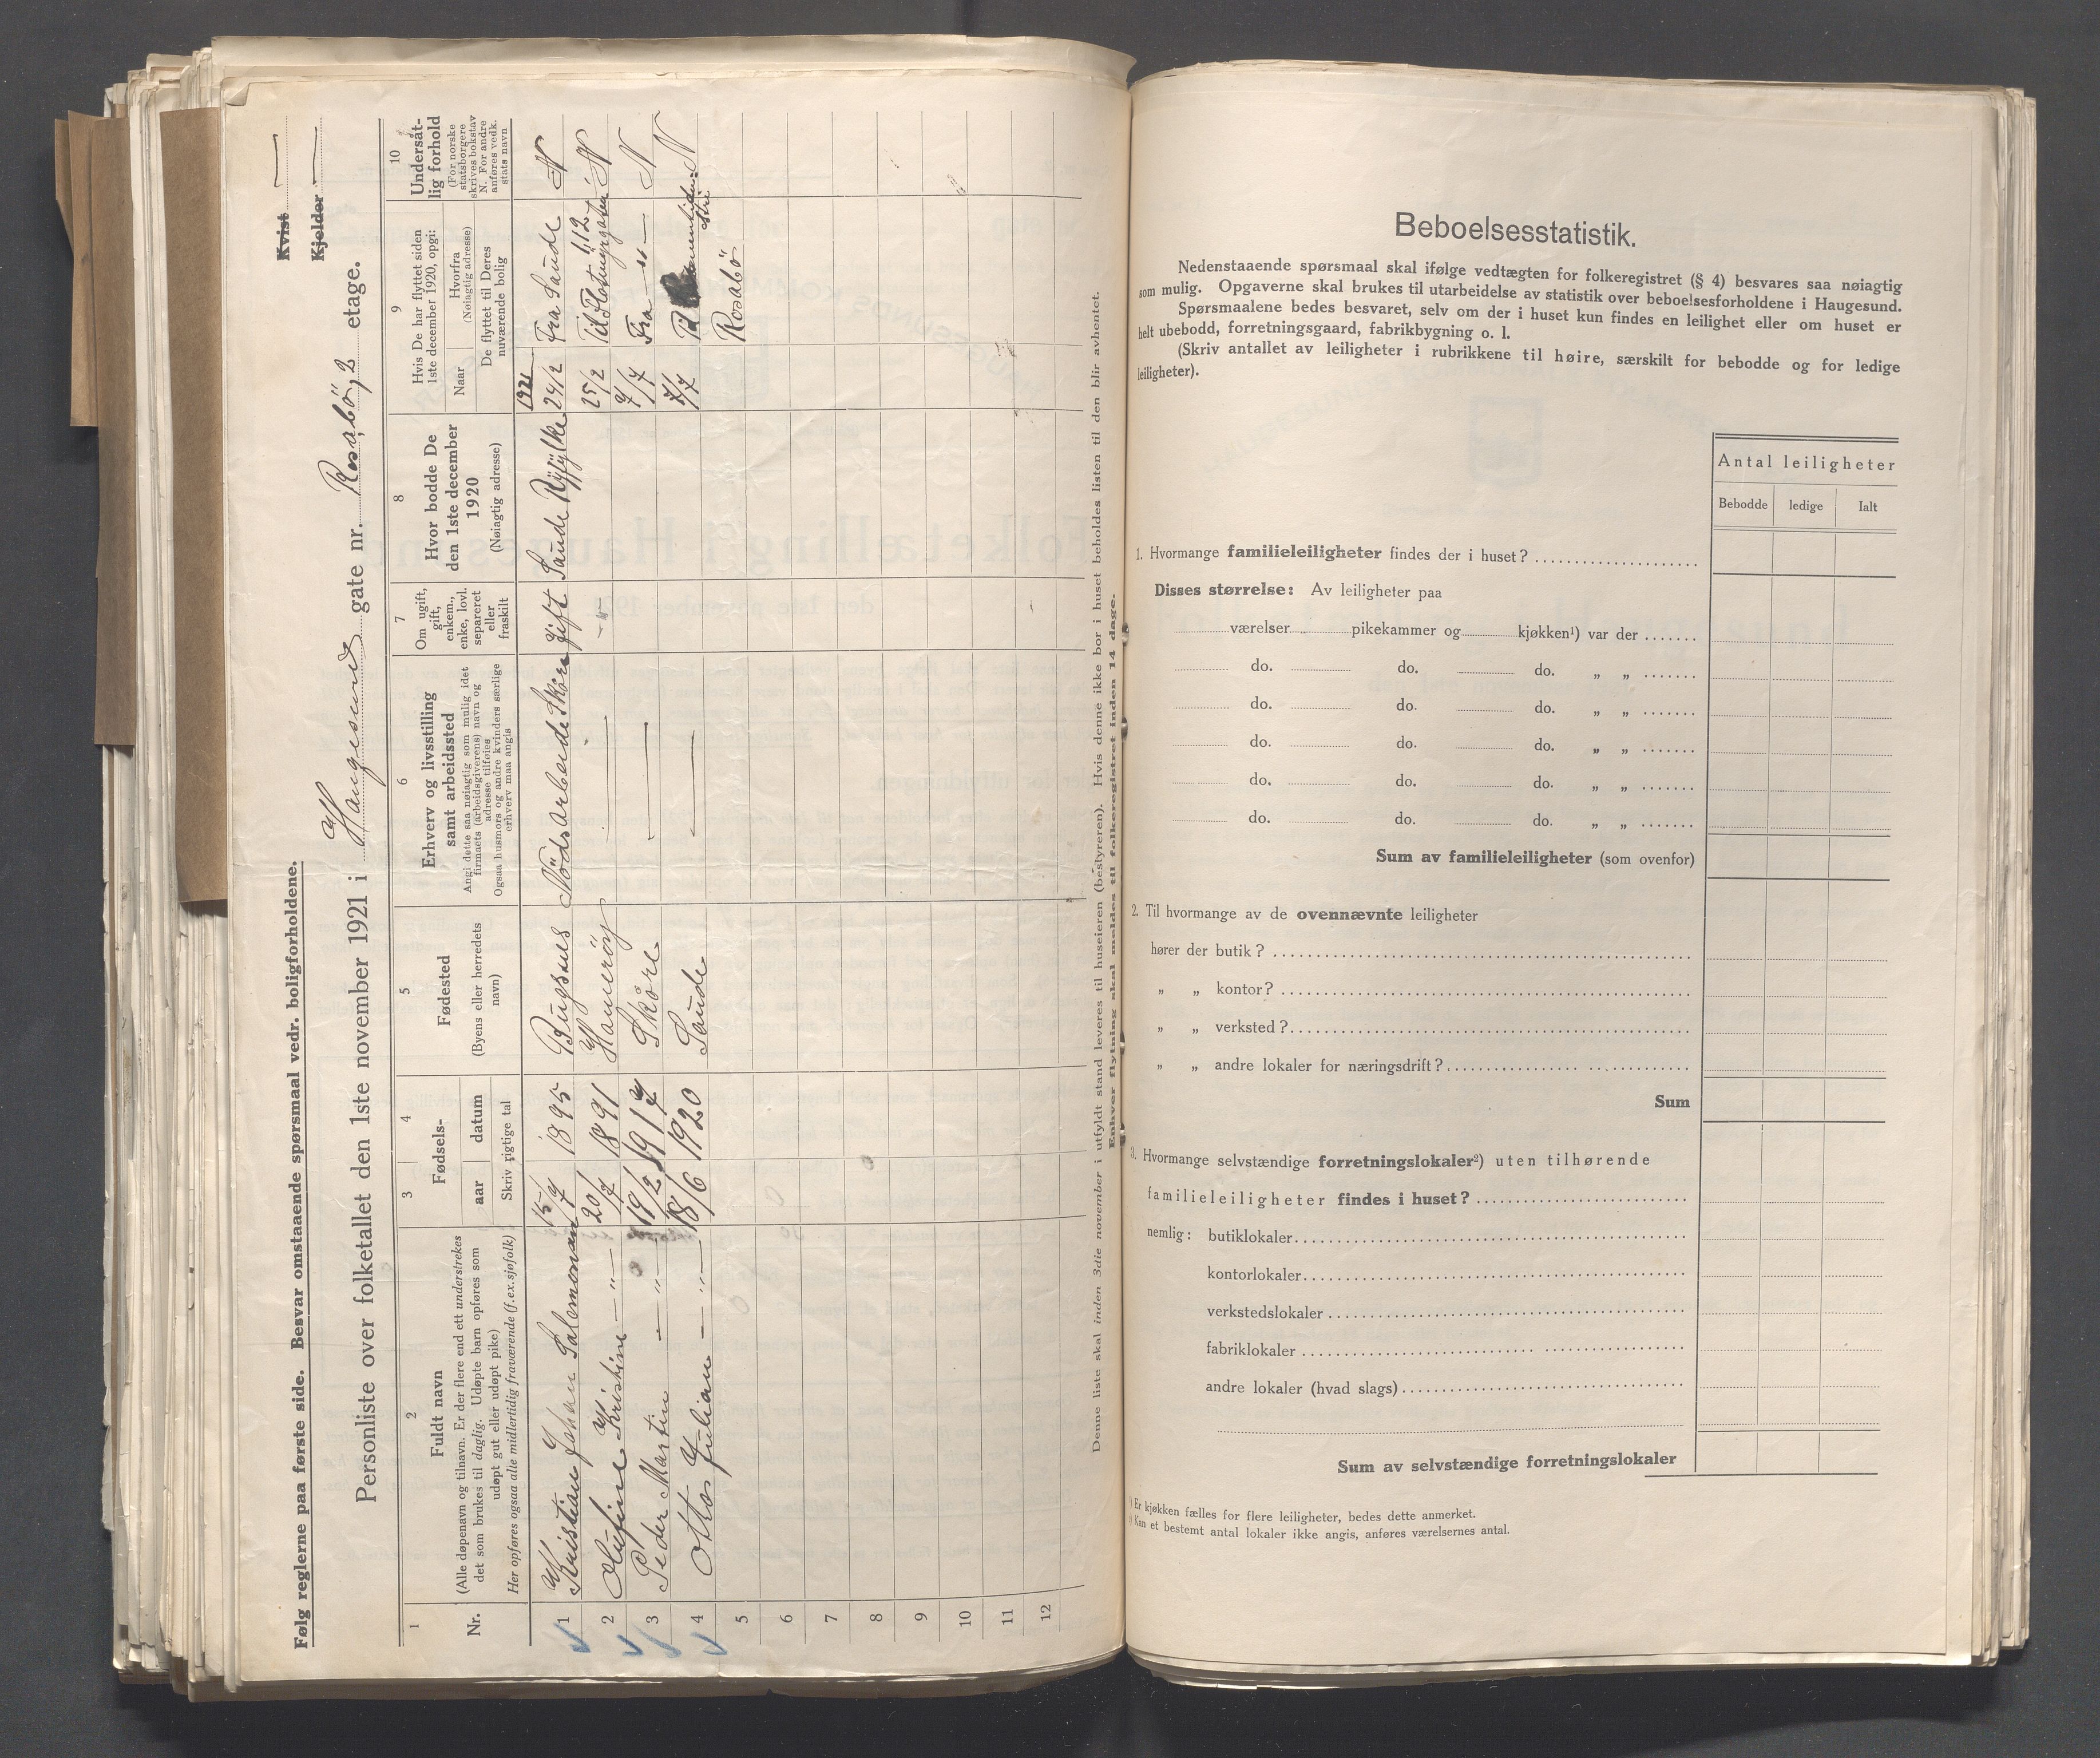 Følg reglerne paa første side. Besvar omstaaende spørsmaal vedr. boligforholdene.
Kvist
Kjelder
Personliste over folketallet den 1ste november 1921 i Haugesund gate nr. Rosabö, 2 etage.
1
Nr.
2
Fuldt navn
(Alle døpenavn og tilnavn. Er der flere end ett understrekes
det som brukes til daglig. Udøpte barn opføres som
udøpt gut eller udøpt pike)
Her opføres ogsaa alle midlertidig fraværende (f.ex.sjøfolk)
3 4
Fødsels-
aar datum
Skriv rigtige tal
5
Fødested
(Byens eller herredets
navn)
6
Erhverv og livsstilling
samt arbeidssted
Angi dette saa nøiagtig som mulig idet
firmaets (arbeidsgiverens) navn og
adresse tilføies
Ogsaa husmors og andre kvinders særlige
erhverv maa angis
7
Om ugift,
gift,
enkem.,
enke, lovl.
separeret
eller
fraskilt
8
Hvor bodde De
den 1ste december
1920
(Nøiagtig adresse)
9
Hvis De har flyttet siden
1ste december 1920, opgi:
Naar
Hvorfra
(Nøiagtig adresse)
De flyttet til Deres
nuværende bolig
10
Undersåt-
lig forhold
(For norske
statsborgere
skrives bokstav
N. For andre
anføres vedk.
stats navn
1921
1 Kristian Johan Salomonsen 15/9 1895 Bugsnes Nödsarbeide Skåre gift Sande Ryfylke 24/2 Fra Sande N
2 Olufine Kristine —"— 20/7 1891 — 25/2 N
3 Peder Martin —"— 19/2 1917 Skåre — 7/7 Fra —"— N
4 Otto Julian —"— 18/6 1920 Sande — 7/7 N
Rosabö
5
6
7
8
9
10
11
12
Denne liste skal inden 3die november i utfyldt stand leveres til huseieren (bestyreren). Hvis denne ikke bor i huset beholdes listen til den blir avhentet.
Enhver flytning skal meldes til folkeregistret inden 14 dage.
Beboelsesstatistik.
Nedenstaaende spørsmaal skal ifølge vedtægten for folkeregistret (§ 4) besvares saa nøiagtig
som mulig. Opgaverne skal brukes til utarbeidelse av statistik over beboelsesforholdene i Haugesund.
Spørsmaalene bedes besvaret, selv om der i huset kun findes en leilighet eller om huset er
helt ubebodd, forretningsgaard, fabrikbygning o. l.
(Skriv antallet av leiligheter i rubrikkene til høire, særskilt for bebodde og for ledige
leiligheter).
Antal leiligheter
Bebodde ledige Ialt
1. Hvormange familieleiligheter findes der i huset?
Disses størrelse: Av leiligheter paa
værelser pikekammer og kjøkken¹) var der
do. do. do. „ „
do. do. do. „ „
do. do. do. „ „
do. do. do. „ „
do. do. do. „ „
Sum av familieleiligheter (som ovenfor)
2. Til hvormange av de ovennævnte leiligheter
hører der butik?
„ „ kontor?
„ „ verksted?
„ „ andre lokaler for næringsdrift?
Sum
3. Hvormange selvstændige forretningslokaler²) uten tilhørende
familieleiligheter findes i huset?
nemlig: butiklokaler
kontorlokaler
verkstedslokaler
fabriklokaler
andre lokaler (hvad slags)
Sum av selvstændige forretningslokaler
¹) Er kjøkken fælles for flere leiligheter, bedes dette anmerket.
²) Kan et bestemt antal lokaler ikke angis, anføres værelsernes antal.